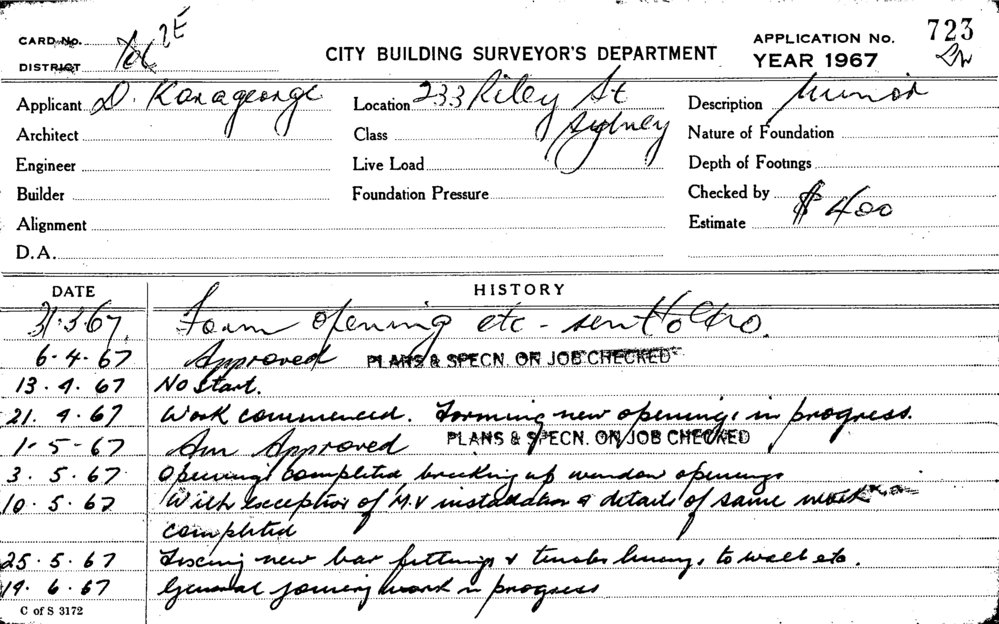 CARD No. 2E
DISTRICT
CITY BUILDING SURVEYOR'S DEPARTMENT
APPLICATION No. 723
YEAR 1967
Applicant D. Karageorge
Location 233 Riley St
Sydney
Description Minor
Architect
Class
Nature of Foundation
Engineer
Live Load
Depth of Footings
Builder
Foundation Pressure
Checked by
Alignment
Estimate $400
D.A.
DATE HISTORY
31.3.67 Form opening etc -
6.4.67 Approved PLANS & SPECN. ON JOB CHECKED
13.4.67 No start.
21.4.67 Work commenced. Forming new openings in progress.
1-5-67 Am Approved PLANS & SPECN. ON JOB CHECKED
3.5.67 Openings completed bricking up window openings
10.5.67 With exception of M.V installation & details of same work
completed
25.5.67 Fixing new bar fittings & timber linings to walls etc.
19.6.67 General joinery work in progress
C of S 3172